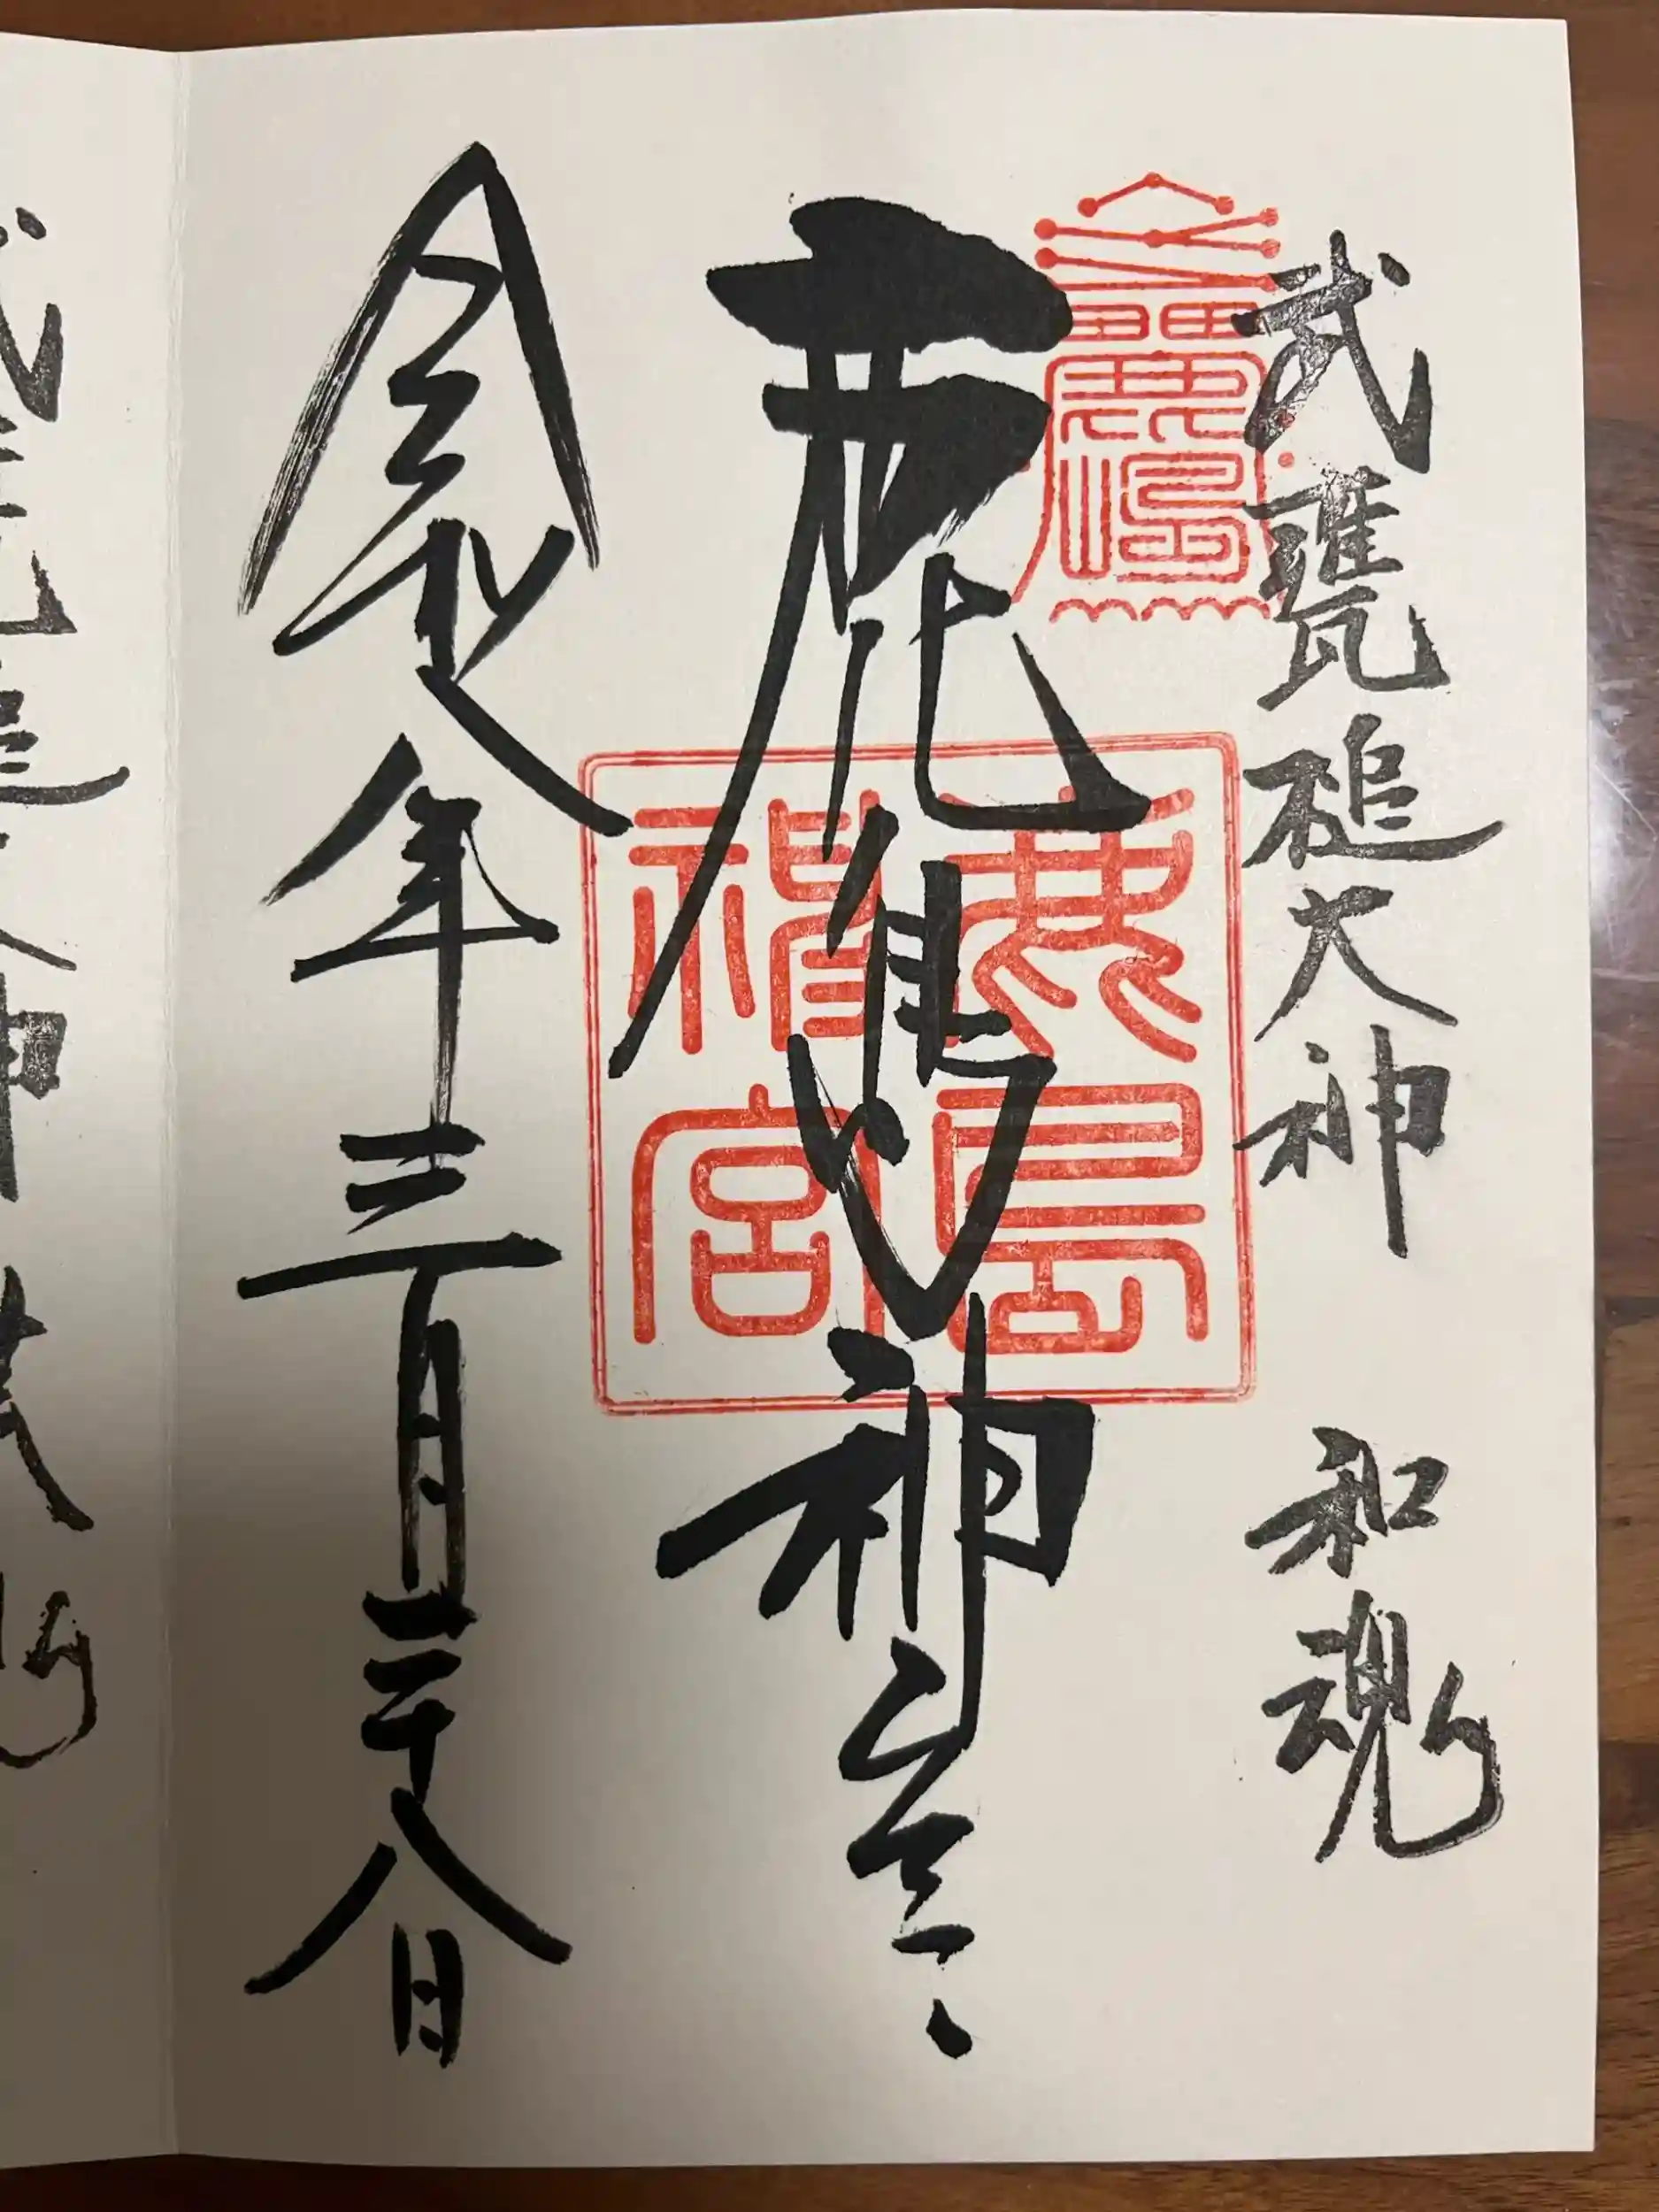 武甕槌大神 和魂
鹿島神宮
鹿島神宮
令和 年三月二十八日